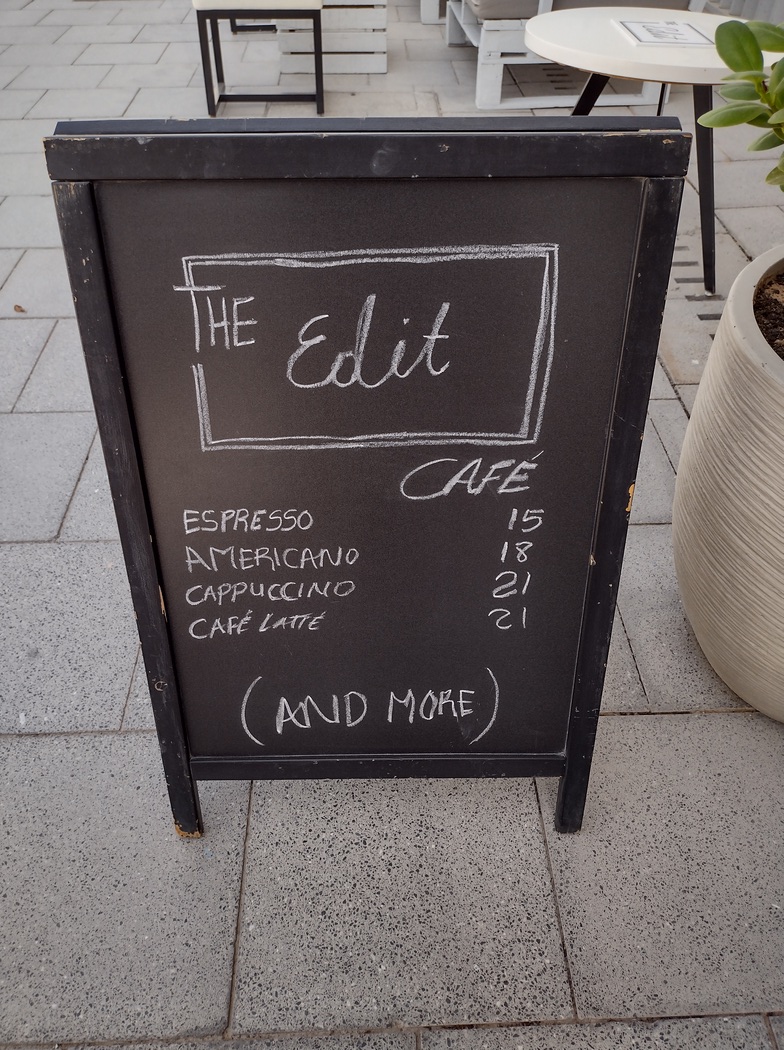 THE Edit
CAFÉ
ESPRESSO 15
AMERICANO 18
CAPPUCCINO 21
CAFÉ LATTÉ 21
(AND MORE)